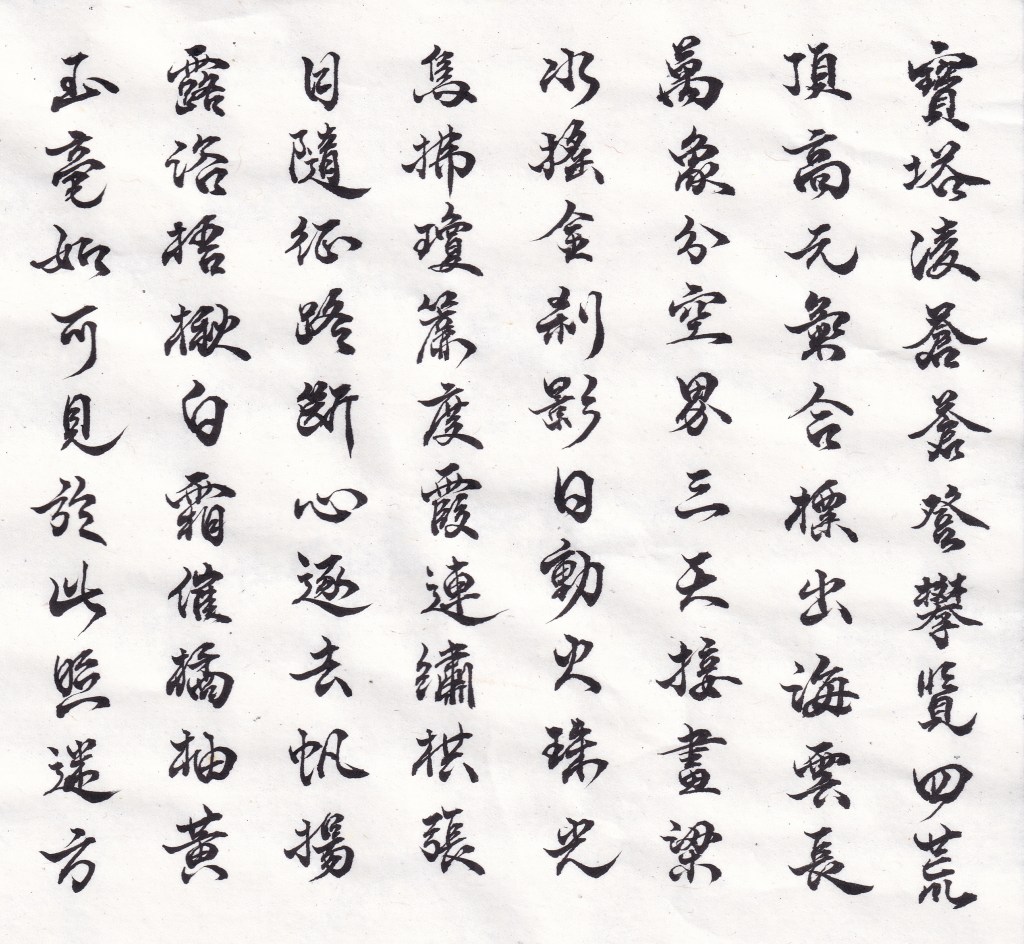 寶塔凌蒼蒼登攀覽四荒
頂高元氣合標出海雲長
萬象分空界三天接畫梁
水搖金剎影日動火珠光
鳥拂瓊簾度霞連繡栱張
目隨征路斷心逐去帆揚
露浴梧楸白霜催橘柚黃
玉毫如可見於此照迷方